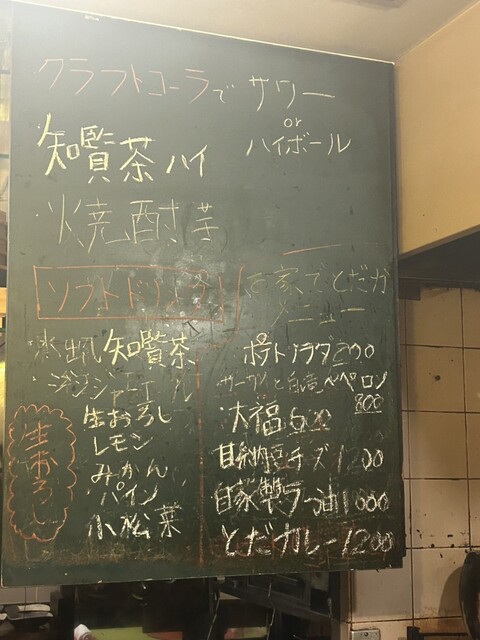 クラフトコーラで サワー
or
ハイボール
知覧茶ハイ
焼酎
ソフトドリンク
家でとだか
メニュー
水出し知覧茶
ジンジャーエール
生おろし
生おろし
レモン
みかん
パイン
小松菜
ポテトサラダ 200
サーモンと白 ペペロン
800
大福 600
自家納豆チーズ 1200
自家製ラー油 1000
とだカレー 1200